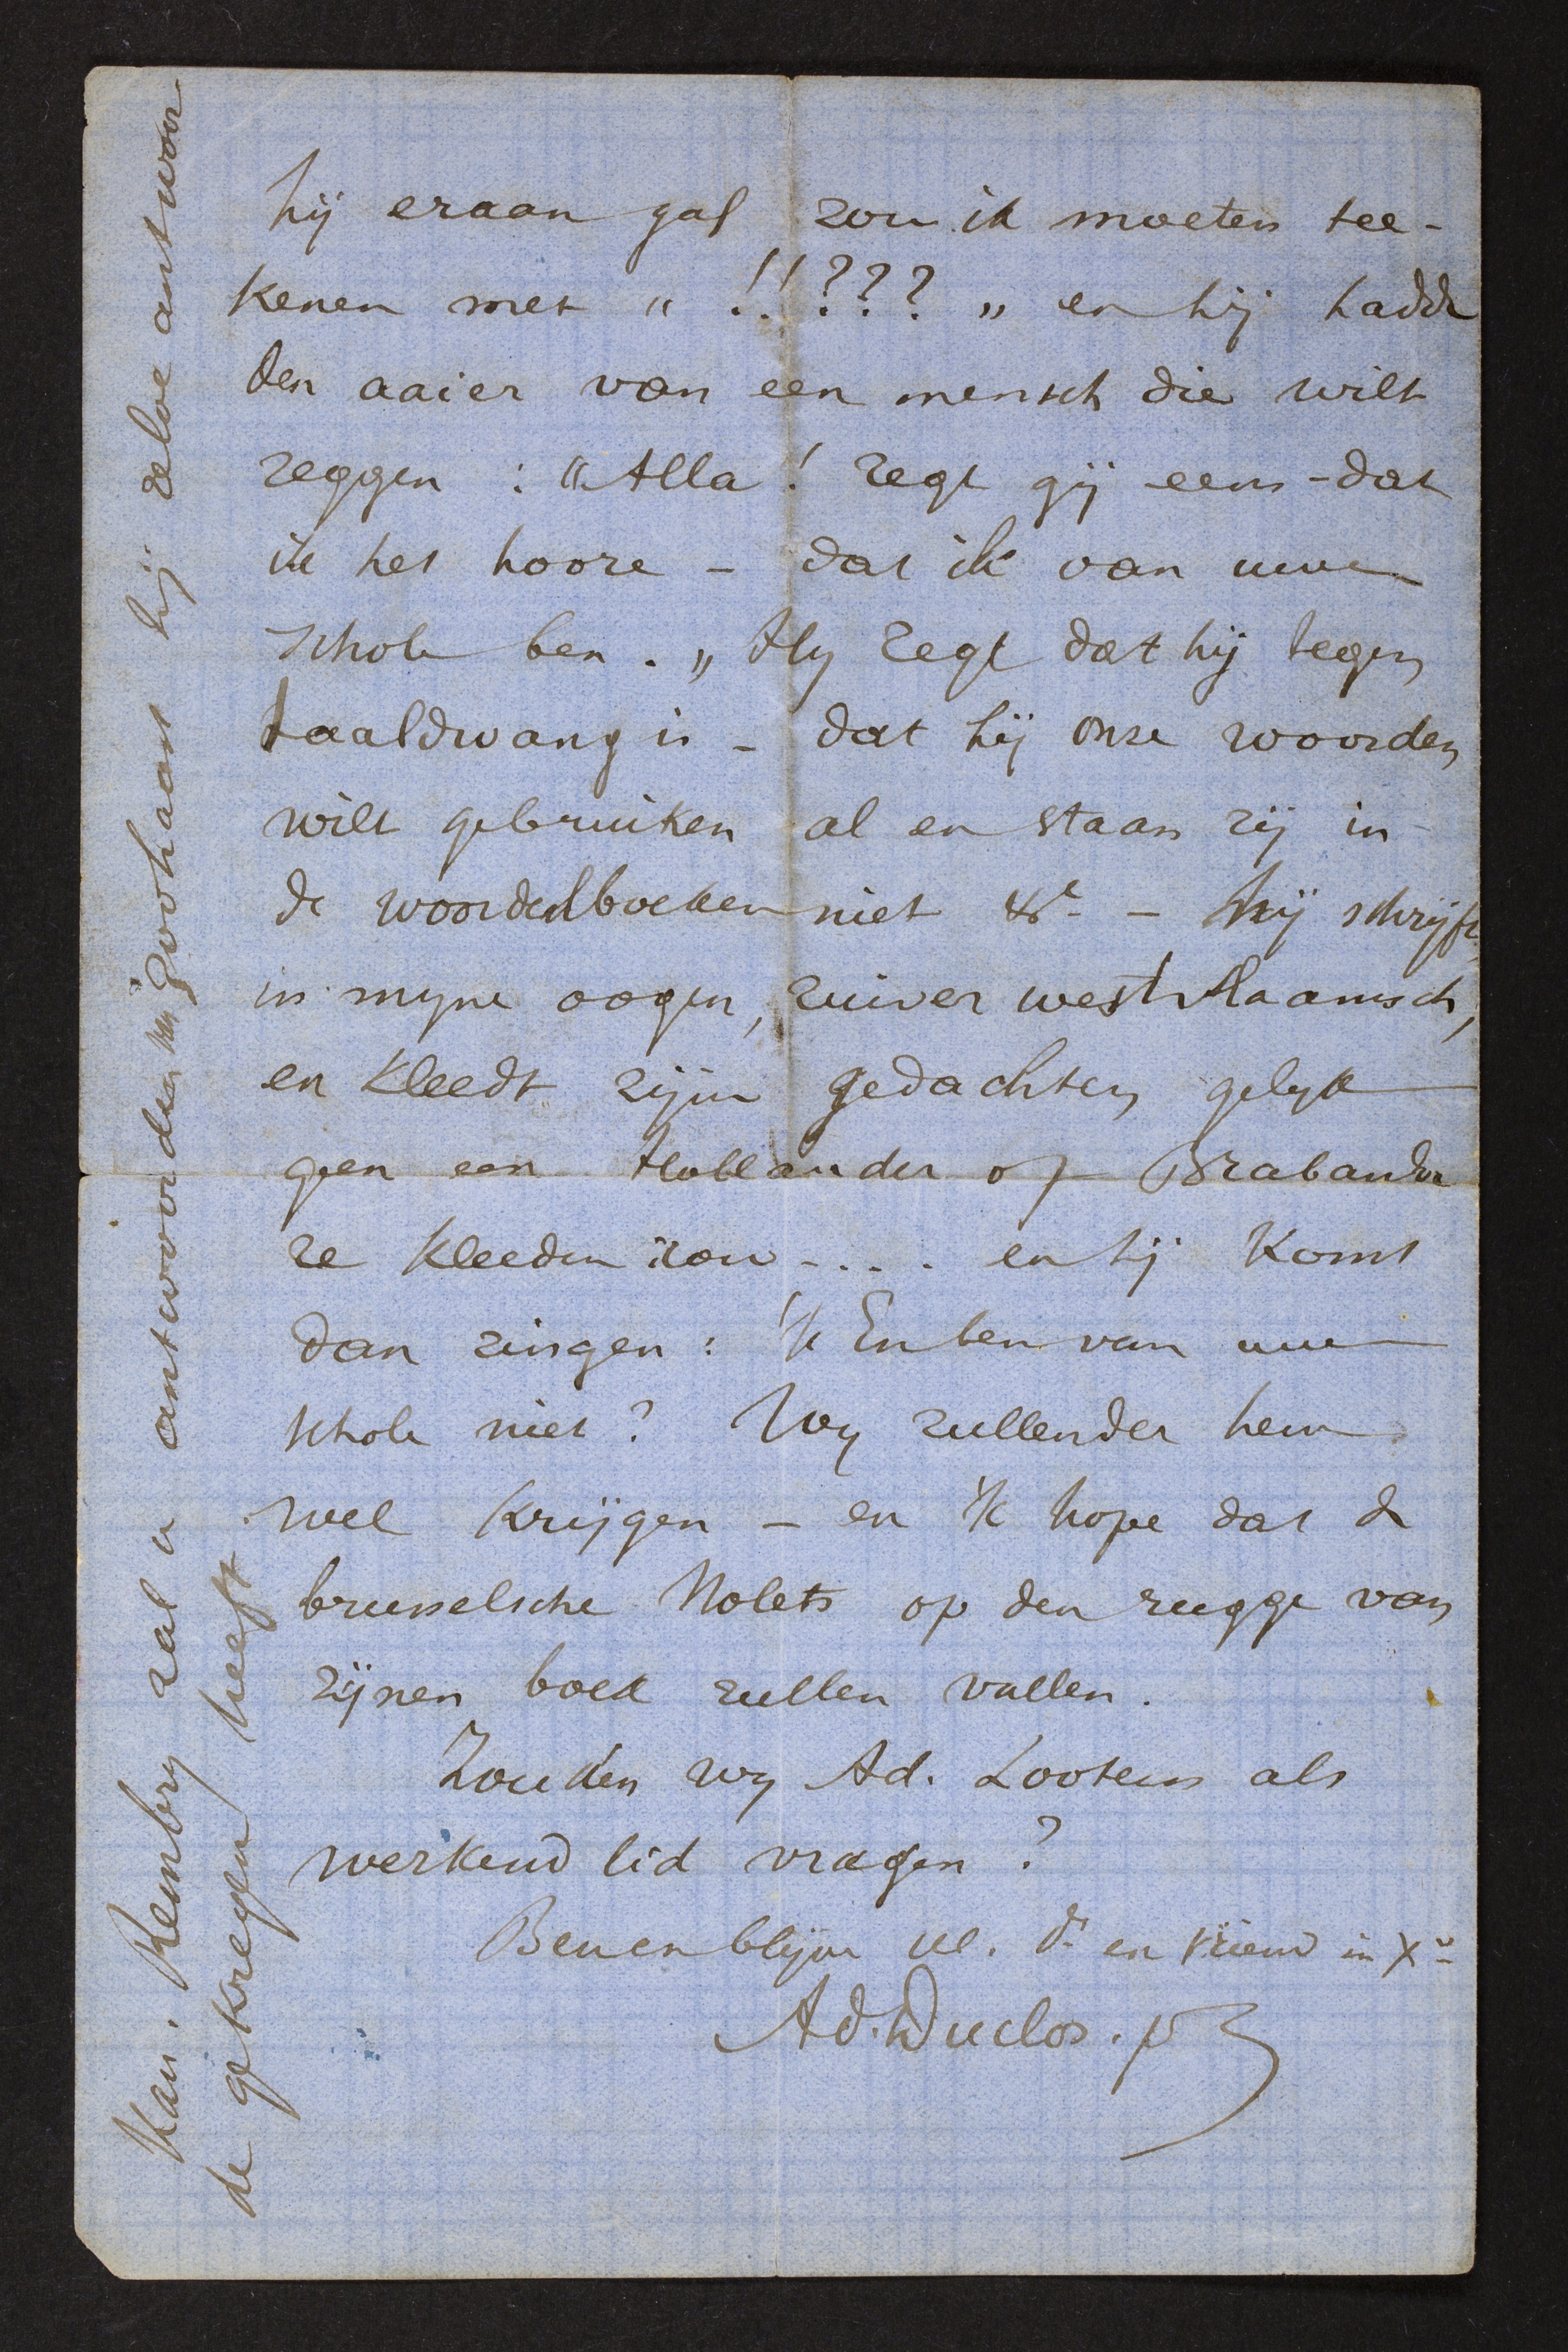 hij eraan gaf zou ik moeten tee-
kenen met „ !!??? „ en hij hadde
den aaier van een mensch die wilt
zeggen : "Alla ! zegt gij eens - dat
ik het hoore - dat ik van uwe
schole ben . „ Hy zegt dat hij tegen
taaldwang is - dat hij onze woorden
wilt gebruiken al en staan zij in
de woordenboeken niet &c - hij schrijft,
in myne oogen, zuiver westvlaamsch,
en kleedt zijne gedachten gelyk
geen een Hollander of Brabander
ze kleeden zou .... en hij komt
dan zingen : 'k En ben van uwe
schole niet ? Wy zullender hem
wel krijgen - en 'k hope dat de
brusselsche Nolets op den rugge van
zijnen boek zullen vallen .
Zouden wy Ad. Lootens als
werkend lid vragen ?
Ben en blijve Ul. dr en vriend in Xo
Ad. Duclos . pr
Kan. Rembry zal u antwoorden zoohaast hij zelve antwoor
de gekregen heeft